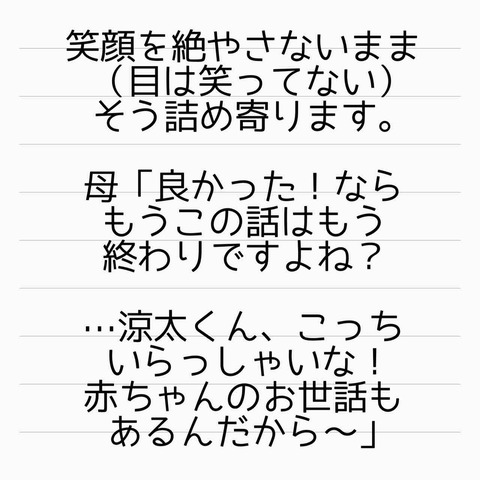 笑顔を絶やさないまま
（目は笑ってない）
そう詰め寄ります。
母「良かった！なら
もうこの話はもう
終わりですよね？
…涼太くん、こっち
いらっしゃいな！
赤ちゃんのお世話も
あるんだから〜」